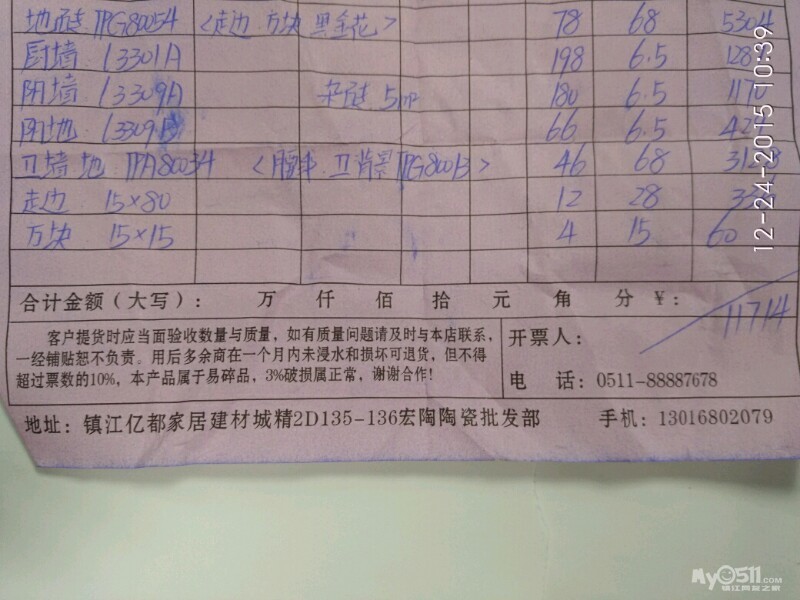 地砖 IPG80054 <走边 方块 黑金花> 78 68 5304
厨墙 13301A 198 6.5 1287
阴墙 13309A 180 6.5 117
阳地 13309B 66 6.5 42
卫墙地 IPA80054 卫背景 IPG80013> 46 68 3128
走边 15×80 12 28 336
方块 15×15 4 15 60
合计金额(大写): 万 仟 佰 拾 元 角 分 ¥: 11714
客户提货时应当面验收数量与质量,如有质量问题请及时与本店联系,
一经铺贴恕不负责。用后多余商在一个月内未浸水和损坏可退货,但不得
超过票数的10%,本产品属于易碎品,3%破损属正常,谢谢合作!
开票人:
电 话:0511-88887678
地址:镇江亿都家居建材城精2D135-136宏陶陶瓷批发部 手机:13016802079
12-24-2015 10:39
My0511.COM
镇江网友之家